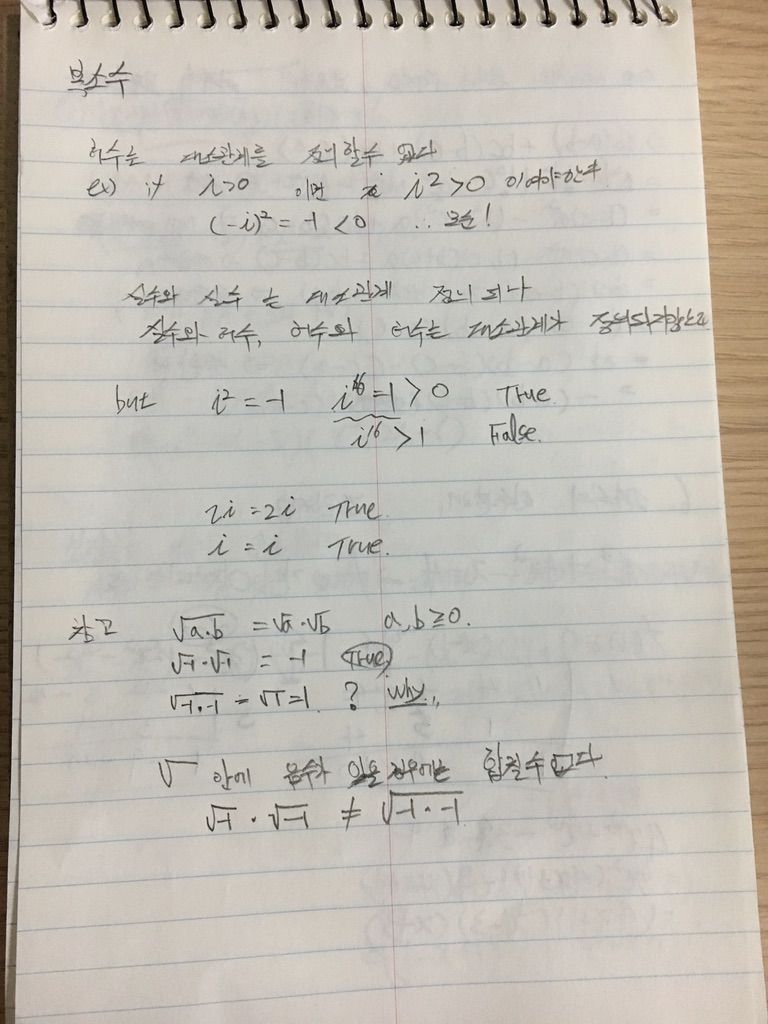 복소수
허수는 대소관계를 정의할수 없다
ex) if i>0 이면 i²>0 이여야한다
(-i)² = -1 <0 ∴ 모순!
실수와 실수는 대소관계 정의 되나
실수와 허수, 허수와 허수는 대소관계가 정의되지않는다
but i² = -1 i¹⁶=1>0 True
i¹⁶>1 False.
2i = 2i True.
i = i True.
참고 √a·b = √a·√b a,b≥0.
√-1·√-1 = -1 True
√-1·-1 = √1=1. ? Why..
√ 안에 음수가 있을 경우에는 합칠수 없다.
√-1 · √-1 ≠ √-1·-1